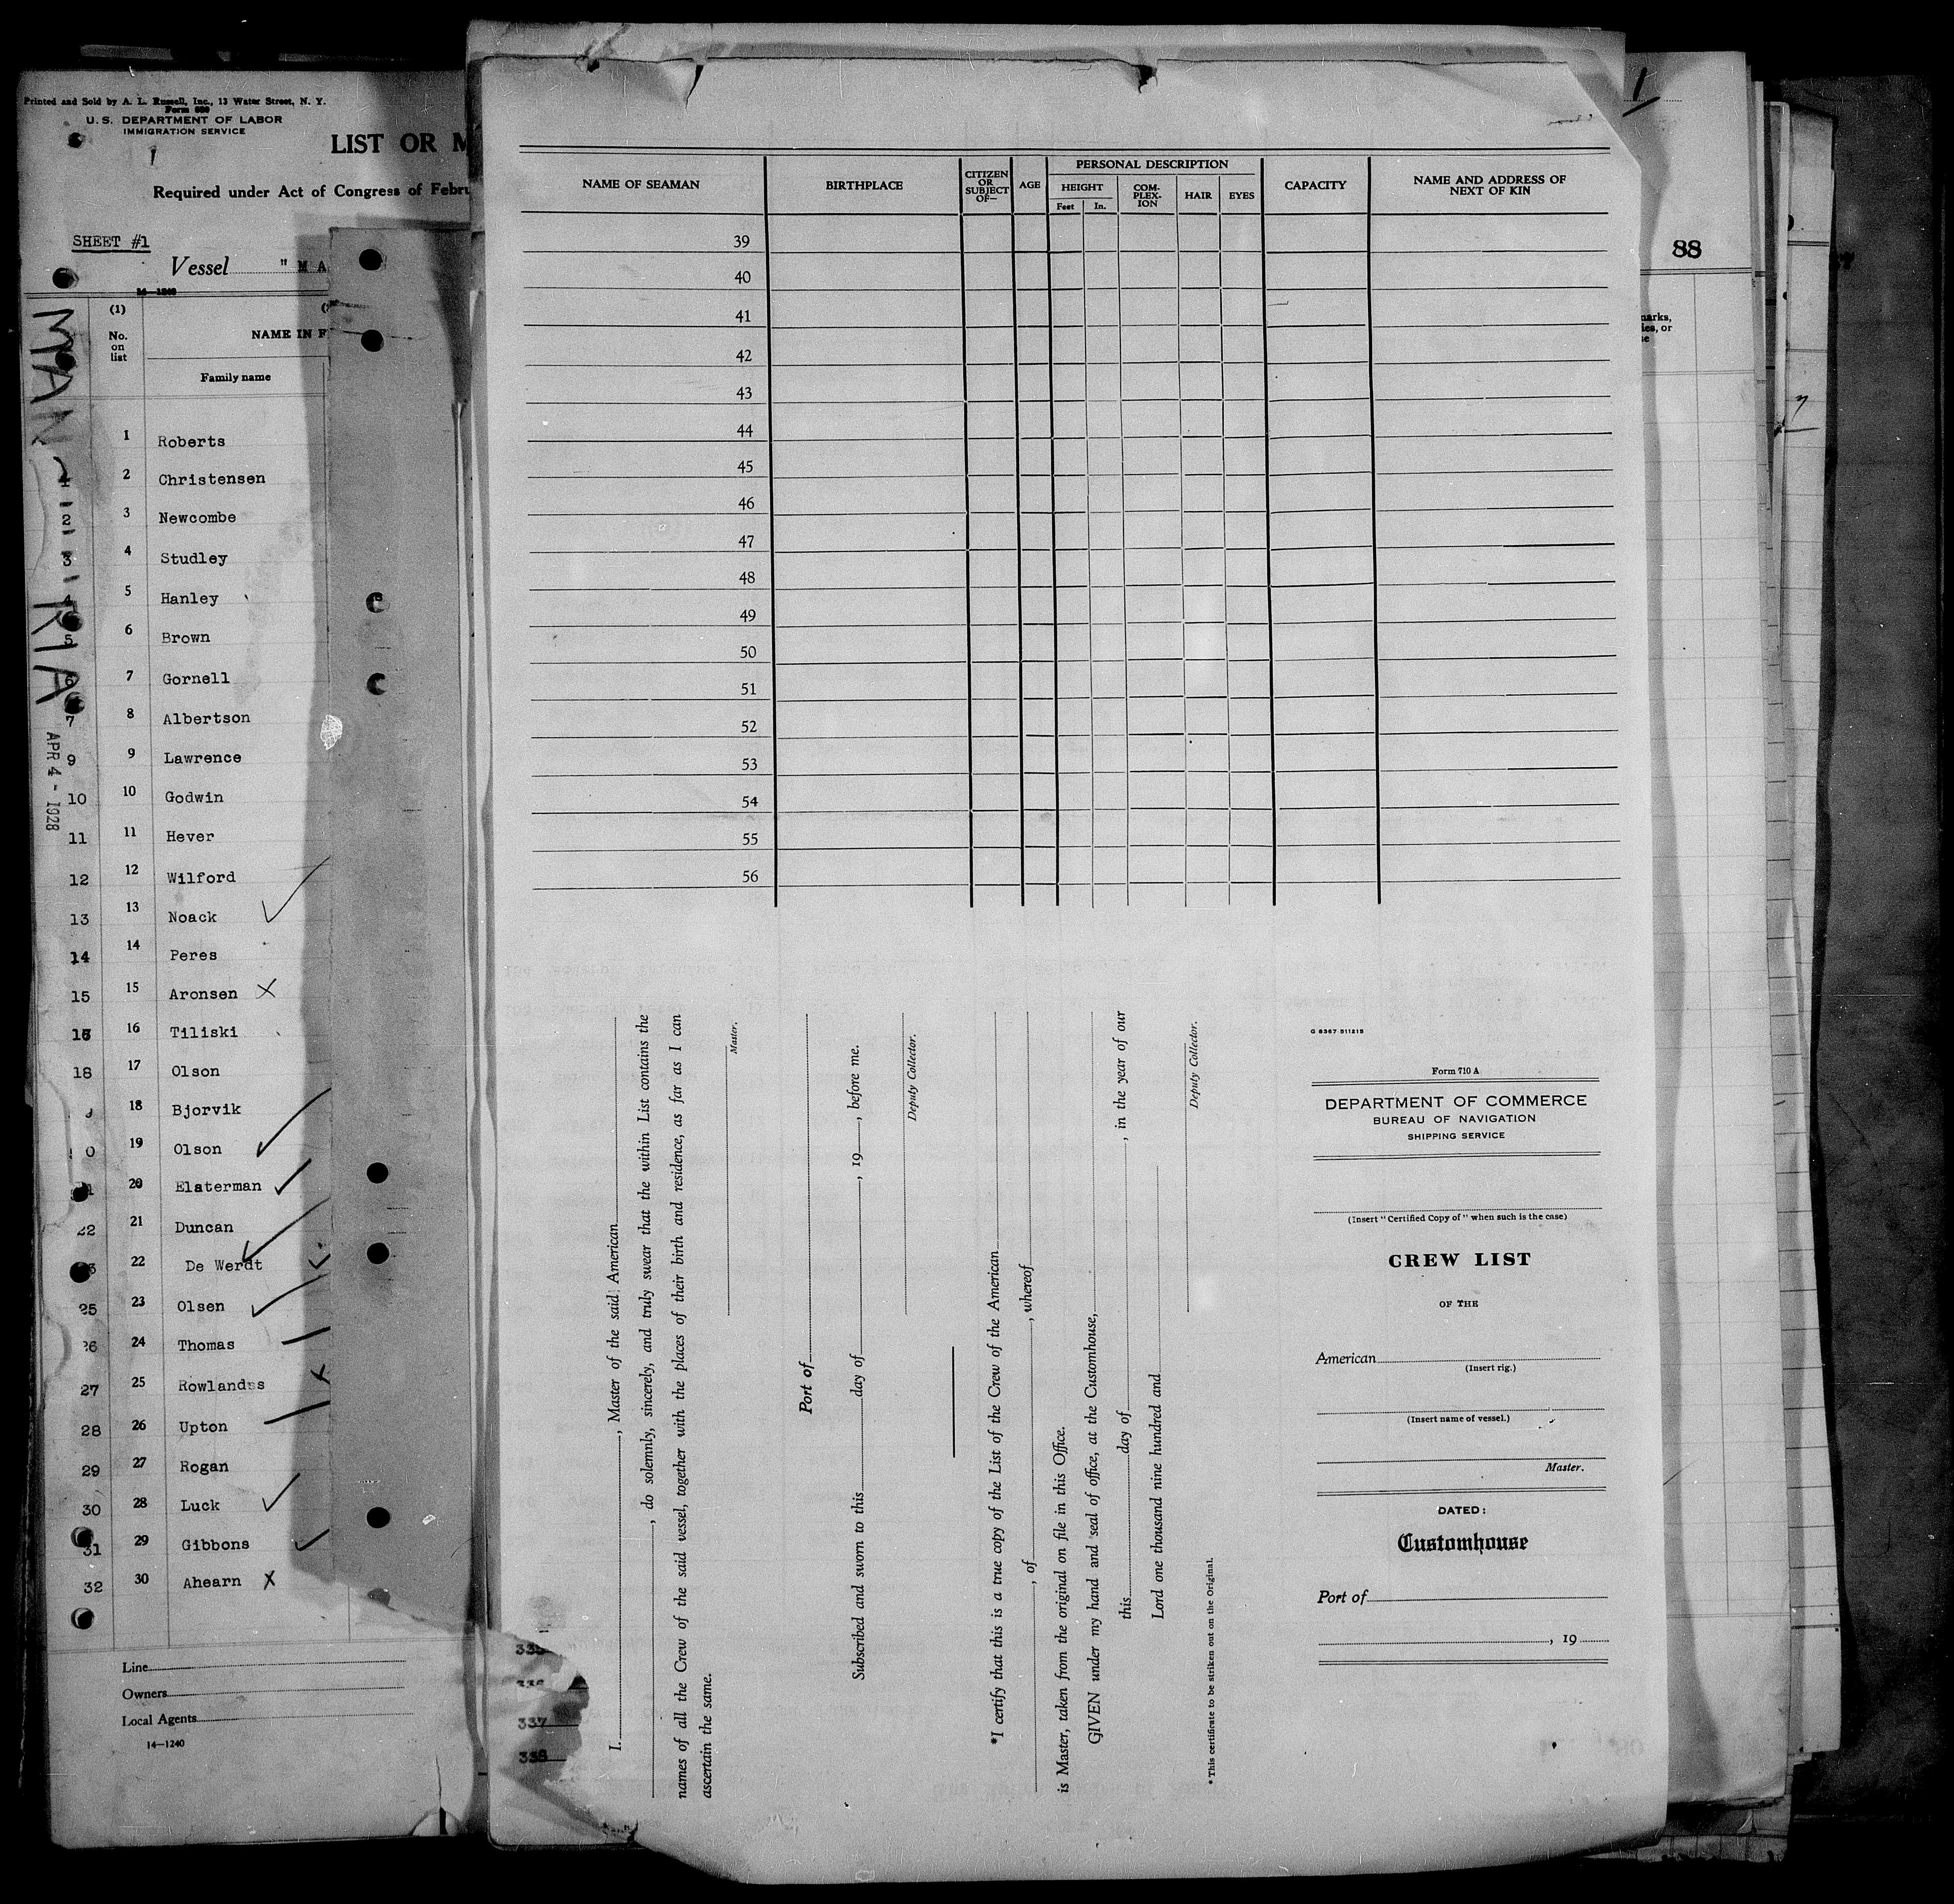 Printed and Sold by A. L. Russell, Inc., 13 Water Street, N. Y.
Form 680
U. S. DEPARTMENT OF LABOR
IMMIGRATION SERVICE
1
LIST OR M
Required under Act of Congress of Febru
SHEET #1
Vessel " M A
14—1240
MAN RIA
APR 4 - 1928
(1)
No. on list
NAME IN F
Family name
1 Roberts
2 Christensen
3 Newcombe
4 Studley
5 Hanley
6 Brown
7 Gornell
8 Albertson
9 9 Lawrence
10 10 Godwin
11 11 Hever
12 12 Wilford
13 13 Noack
14 14 Peres
15 15 Aronsen X
16 16 Tiliski
18 17 Olson
18 Bjorvik
19 Olson
20 Elsterman
22 21 Duncan
22 De Werdt
25 23 Olsen
26 24 Thomas
27 25 Rowlands
28 26 Upton
29 27 Rogan
30 28 Luck
31 29 Gibbons
32 30 Ahearn X
Line
Owners
Local Agents
14—1240
NAME OF SEAMAN
BIRTHPLACE
CITIZEN OR SUBJECT OF—
AGE
PERSONAL DESCRIPTION
HEIGHT
Feet In.
COM-PLEX-ION
HAIR
EYES
CAPACITY
NAME AND ADDRESS OF NEXT OF KIN
39
40
41
42
43
44
45
46
47
48
49
50
51
52
53
54
55
56
335
336
337
338
I, , Master of the said American
, do solemnly, sincerely, and truly swear that the within List contains the
names of all the Crew of the said vessel, together with the places of their birth and residence, as far as I can
ascertain the same.
Master.
Port of
Subscribed and sworn to this day of , 19 , before me.
Deputy Collector.
*I certify that this is a true copy of the List of the Crew of the American
, of , whereof
is Master, taken from the original on file in this Office.
GIVEN under my hand and seal of office, at the Customhouse,
this day of , in the year of our
Lord one thousand nine hundred and
Deputy Collector.
*This certificate to be striken out on the Original.
G 8367 511215
Form 710 A
DEPARTMENT OF COMMERCE
BUREAU OF NAVIGATION
SHIPPING SERVICE
(Insert "Certified Copy of" when such is the case)
CREW LIST
OF THE
American
(Insert rig.)
(Insert name of vessel.)
Master.
DATED:
Customhouse
Port of
, 19
1
88